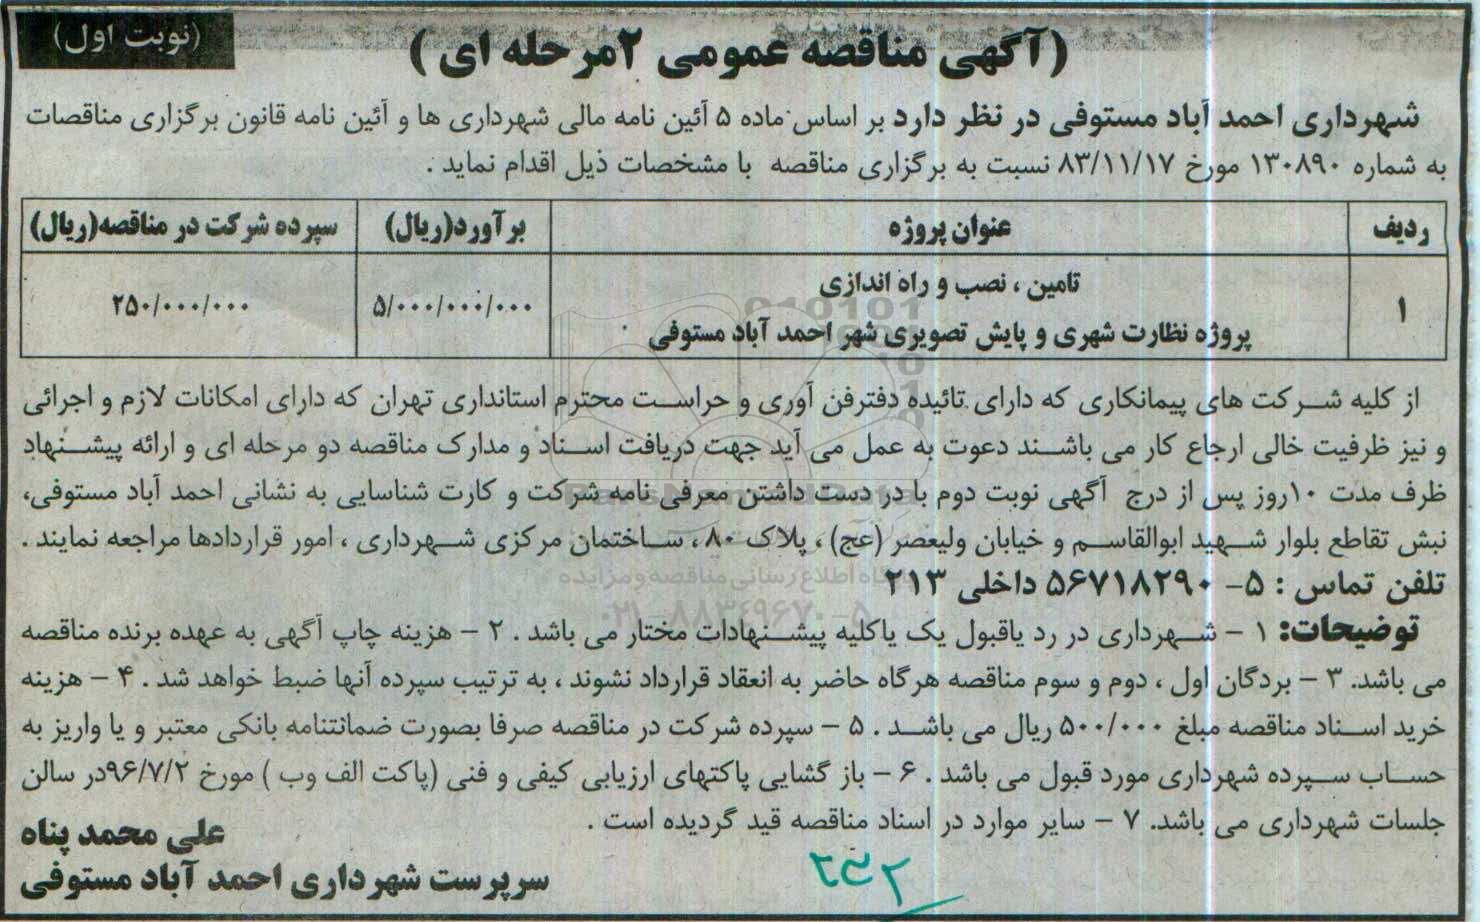 (نوبت اول)
(آگهی مناقصه عمومی ۲مرحله ای )
شهرداری احمد آباد مستوفی در نظر دارد بر اساس ماده ۵ آئین نامه مالی شهرداری ها و آئین نامه قانون برگزاری مناقصات
به شماره ۱۳۰۸۹۰ مورخ ۸۳/۱۱/۱۷ نسبت به برگزاری مناقصه با مشخصات ذیل اقدام نماید .
ردیف عنوان پروژه برآورد(ریال) سپرده شرکت در مناقصه(ریال)
۱ تامین ، نصب و راه اندازی
پروژه نظارت شهری و پایش تصویری شهر احمد آباد مستوفی ۵/۰۰۰/۰۰۰/۰۰۰ ۲۵۰/۰۰۰/۰۰۰
از کلیه شرکت های پیمانکاری که دارای تائیده دفترفن آوری و حراست محترم استانداری تهران که دارای امکانات لازم و اجرائی
و نیز ظرفیت خالی ارجاع کار می باشند دعوت به عمل می آید جهت دریافت اسناد و مدارک مناقصه دو مرحله ای و ارائه پیشنهاد
ظرف مدت ۱۰روز پس از درج آگهی نوبت دوم با در دست داشتن معرفی نامه شرکت و کارت شناسایی به نشانی احمد آباد مستوفی،
نبش تقاطع بلوار شهید ابوالقاسم و خیابان ولیعصر (عج) ، پلاک ۸۰ ، ساختمان مرکزی شهرداری ، امور قراردادها مراجعه نمایند .
تلفن تماس : ۵- ۵۶۷۱۸۲۹۰ داخلی ۲۱۳
توضیحات: ۱ - شهرداری در رد یاقبول یک یاکلیه پیشنهادات مختار می باشد . ۲ - هزینه چاپ آگهی به عهده برنده مناقصه
می باشد. ۳ - بردگان اول ، دوم و سوم مناقصه هرگاه حاضر به انعقاد قرارداد نشوند ، به ترتیب سپرده آنها ضبط خواهد شد . ۴ - هزینه
خرید اسناد مناقصه مبلغ ۵۰۰/۰۰۰ ریال می باشد . ۵ - سپرده شرکت در مناقصه صرفا بصورت ضمانتنامه بانکی معتبر و یا واریز به
حساب سپرده شهرداری مورد قبول می باشد . ۶ - باز گشایی پاکتهای ارزیابی کیفی و فنی (پاکت الف وب ) مورخ ۹۶/۷/۲در سالن
جلسات شهرداری می باشد. ۷ - سایر موارد در اسناد مناقصه قید گردیده است .
علی محمد پناه
سرپرست شهرداری احمد آباد مستوفی
ParsNamadData
پایگاه اطلاع رسانی مناقصه و مزایده
۰۲۱-۸۸۳۴۹۶۷۰-۵